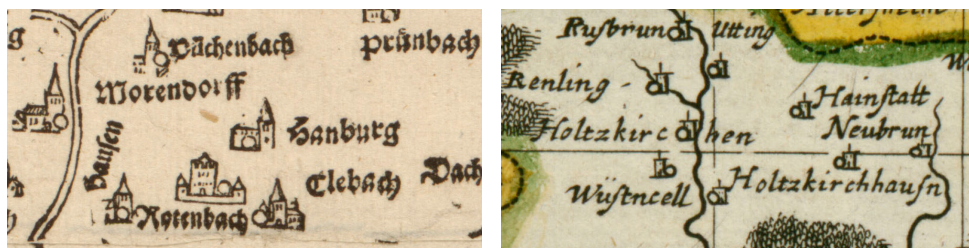 Püchenbach
prünbach
Morendorff
Hanburg
Hausen
Clebach
Dach
Rotenbach
Rusbrun
Utting
Renling
Hainstatt
Neubrun
Holtzkirchen
Holtzkirchhausn
Wüstncell